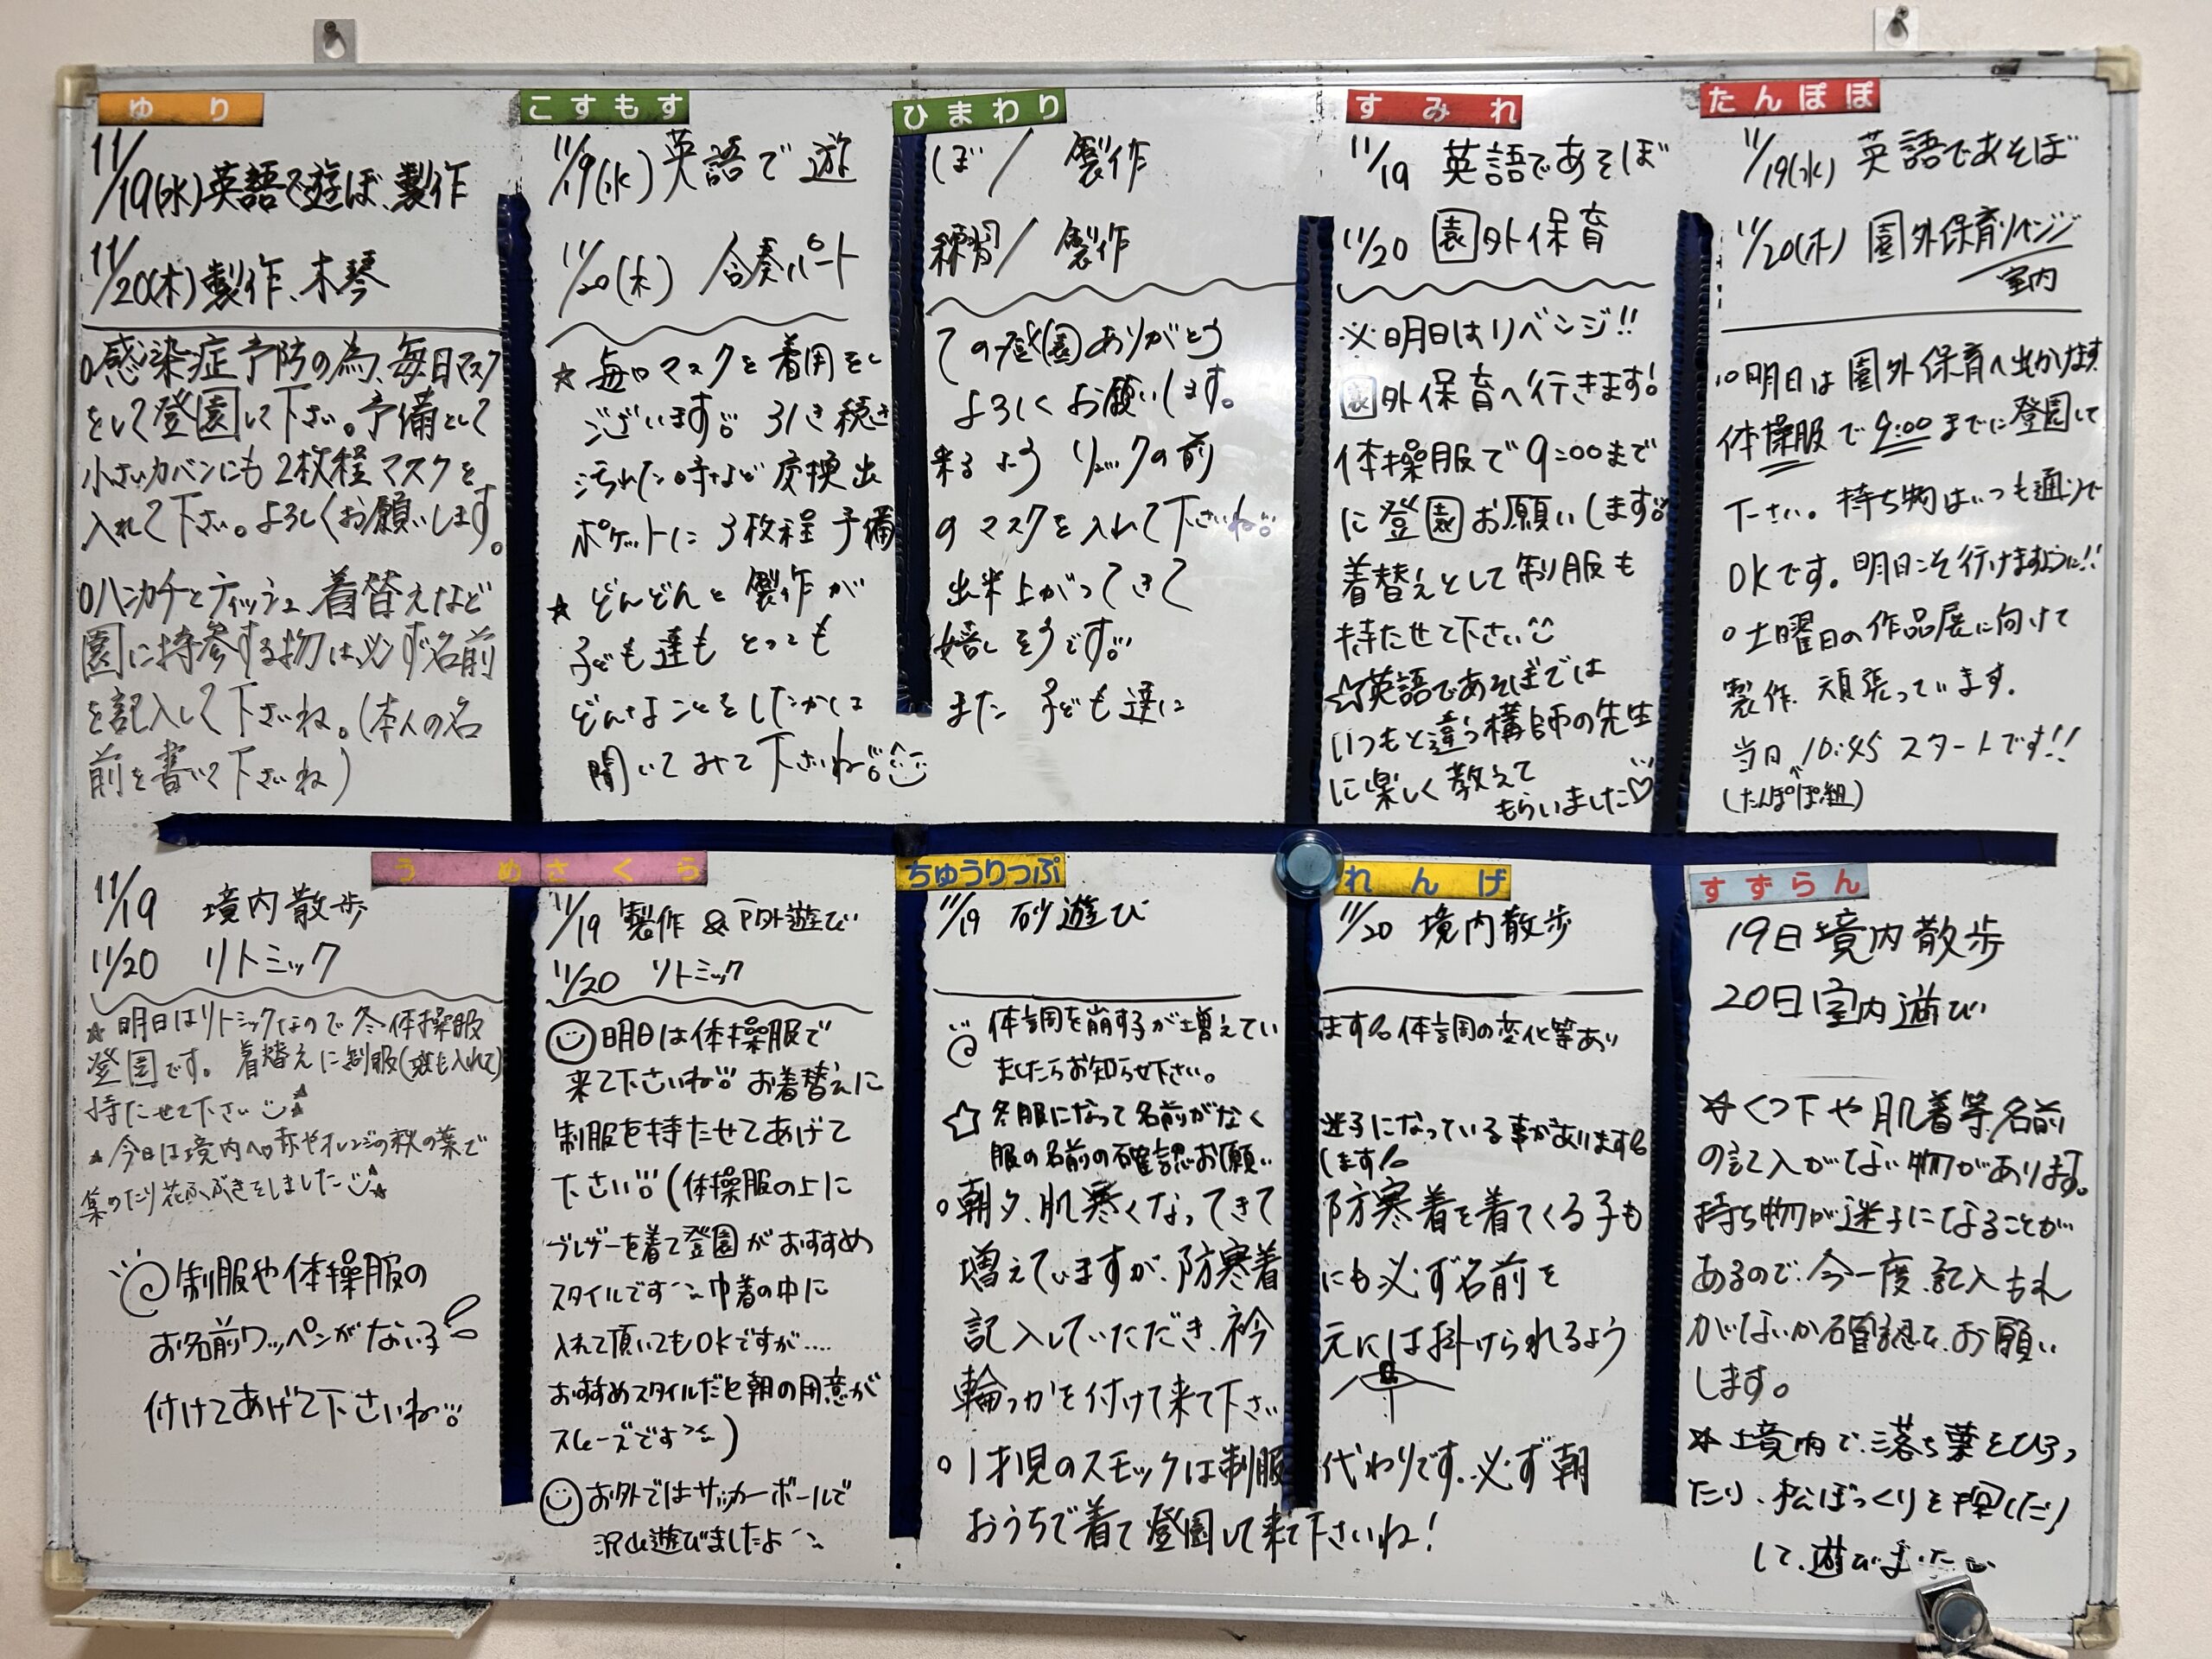 ゆり
11/19(水)英語で遊ぼ、製作
11/20(木)製作、木琴
○感染症予防の為、毎日マスク
をして登園して下さい。予備として
小さいカバンにも2枚程マスクを
入れて下さい。よろしくお願いします。
○ハンカチとティッシュ、着替えなど
園に持参する物は必ず名前
を記入して下さいね。(本人の名
前を書いて下さいね)
こすもす ひまわり
11/19(水) 英語で遊ぼ/ 製作
11/20(木) 合奏パート練習/ 製作
☆毎日マスクを着用をしての登園ありがとう
ございます。引き続きよろしくお願いします。
汚れた時など交換出来るようリュックの前
ポケットに3枚程予備のマスクを入れて下さいね。
☆どんどんと製作が出来上がってきて
子ども達もとっても嬉しそうです。
どんなことをしたかはまた子ども達に
聞いてみて下さいね。
すみれ
11/19 英語であそぼ
11/20 園外保育
※明日はリベンジ!!
園外保育へ行きます!
体操服で9:00まで
に登園お願いします。
着替えとして制服も
持たせて下さい
☆英語であそぼでは
いつもと違う構師の先生
に楽しく教えて
もらいました♡
たんぽぽ
11/19(水) 英語であそぼ
11/20(木) 園外保育リベンジ
室内
○明日は園外保育へ出かけます。
体操服で9:00までに登園して
下さい。持ち物はいつも通りで
OKです。明日こそ行けますように!!
○土曜日の作品展に向けて
製作 頑張っています。
当日 10:45 スタートです!!
(たんぽぽ組)
うめ
11/19 境内散歩
11/20 リトミック
★明日はリトミックなので冬体操服
登園です。着替えに制服(靴下も入れて)
持たせて下さい
★今日は境内へ。赤やオレンジの秋の葉で
集めたり花ふぶきをしました
制服や体操服の
お名前ワッペンがない子
付けてあげて下さいね。
さくら
11/19 製作&戸外遊び
11/20 リトミック
明日は体操服で
来て下さいね。お着替えに
制服を持たせてあげて
下さい。(体操服の上に
ブレザーを着て登園がおすすめ
スタイルです 巾着の中に
入れて頂いてもOKですが....
おすすめスタイルだと朝の用意が
スムーズです)
お外ではサッカーボールで
沢山遊びましたよ
ちゅうりっぷ れんげ
11/19 砂遊び
11/20 境内散歩
体調を崩す子が増えています。体調の変化等あり
ましたらお知らせ下さい。
☆冬服になって名前がなく迷子になっている事があります。
服の名前の確認お願いします。
○朝夕、肌寒くなってきて防寒着を着てくる子も
増えていますが、防寒着にも必ず名前を
記入していただき、衿元には掛けられるよう
輪っかを付けて来て下さい
○1才児のスモックは制服代わりです。必ず朝
おうちで着て登園して来て下さいね!
すずらん
19日 境内散歩
20日 室内遊び
☆くつ下や肌着等、名前
の記入がない物があります。
持ち物が迷子になることが
あるので、今一度、記入もれ
がないか確認を、お願い
します。
☆境内で、落ち葉をひろっ
たり、松ぼっくりを探したり
して、遊びました